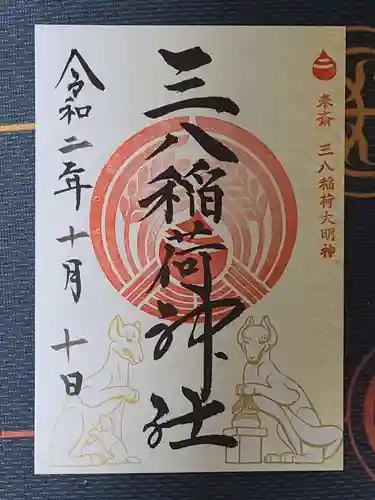 奉斎 三八稲荷大明神
三八稲荷神社
令和二年十月十日